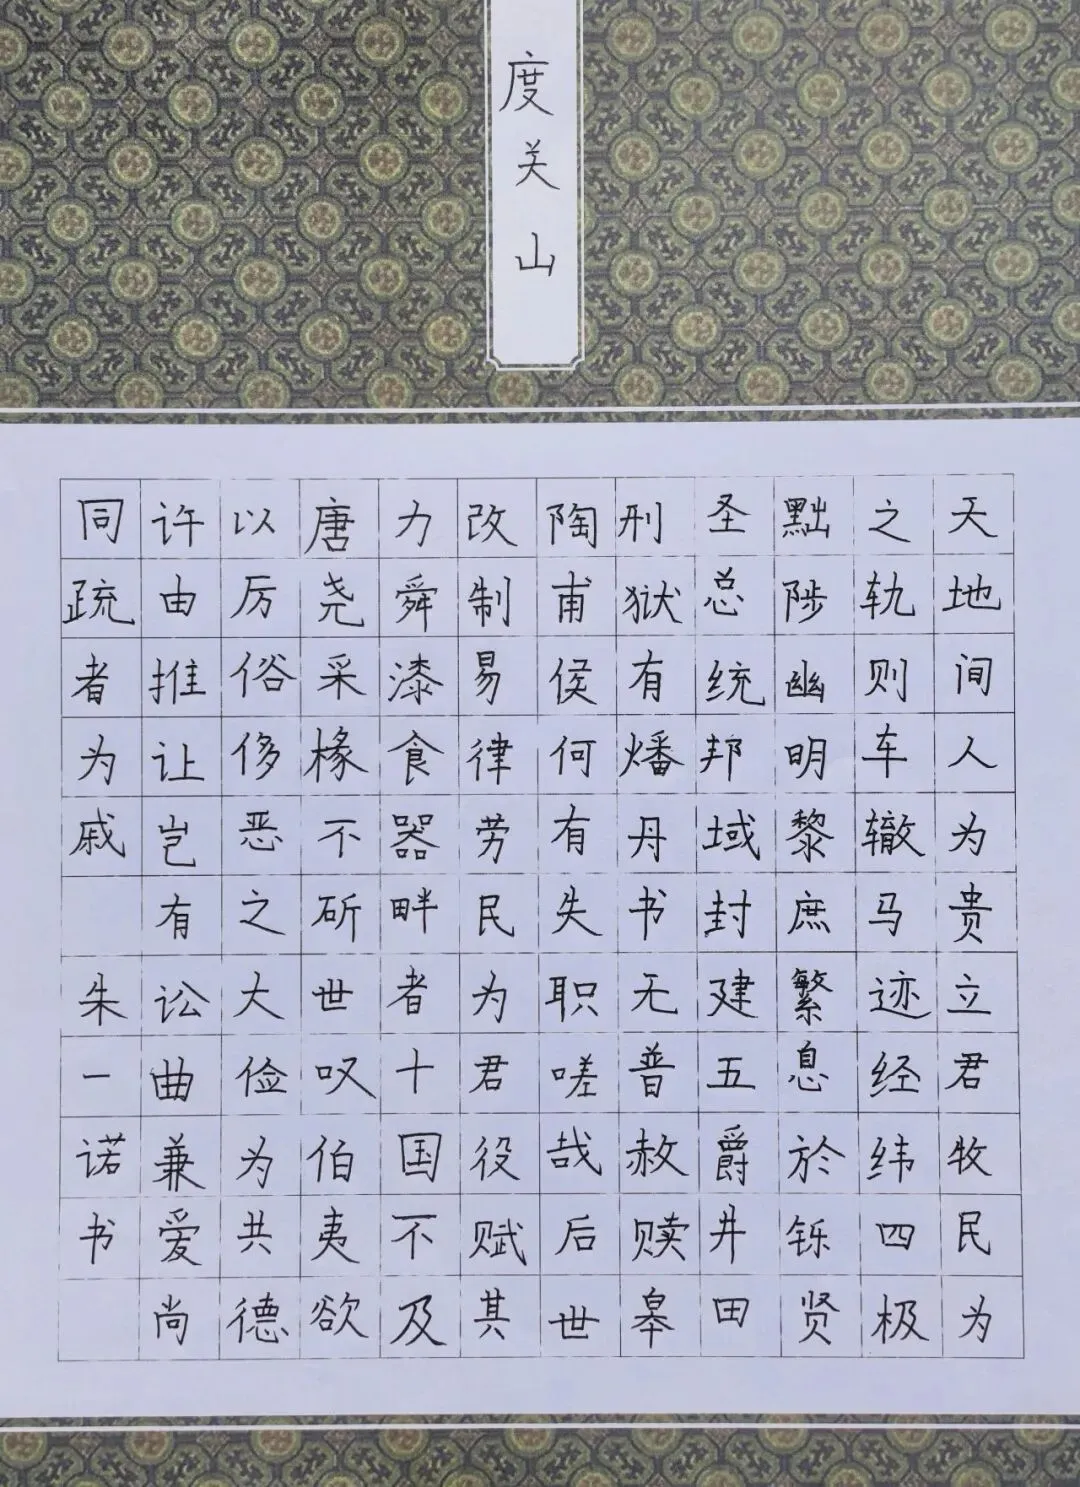 度关山
天地间人为贵立君牧民为
之轨则车辙马迹经纬四极
黜陟幽明黎庶繁息於铄贤
圣总统邦域封建五爵井田
刑狱有燔丹书无普赦赎皋
陶甫侯何有失职嗟哉后世
改制易律劳民为君役赋其
力舜漆食器畔者十国不及
唐尧采椽不斫世叹伯夷欲
以厉俗侈恶之大俭为共德
许由推让岂有讼曲兼爱尚
同疏者为戚
朱一诺书